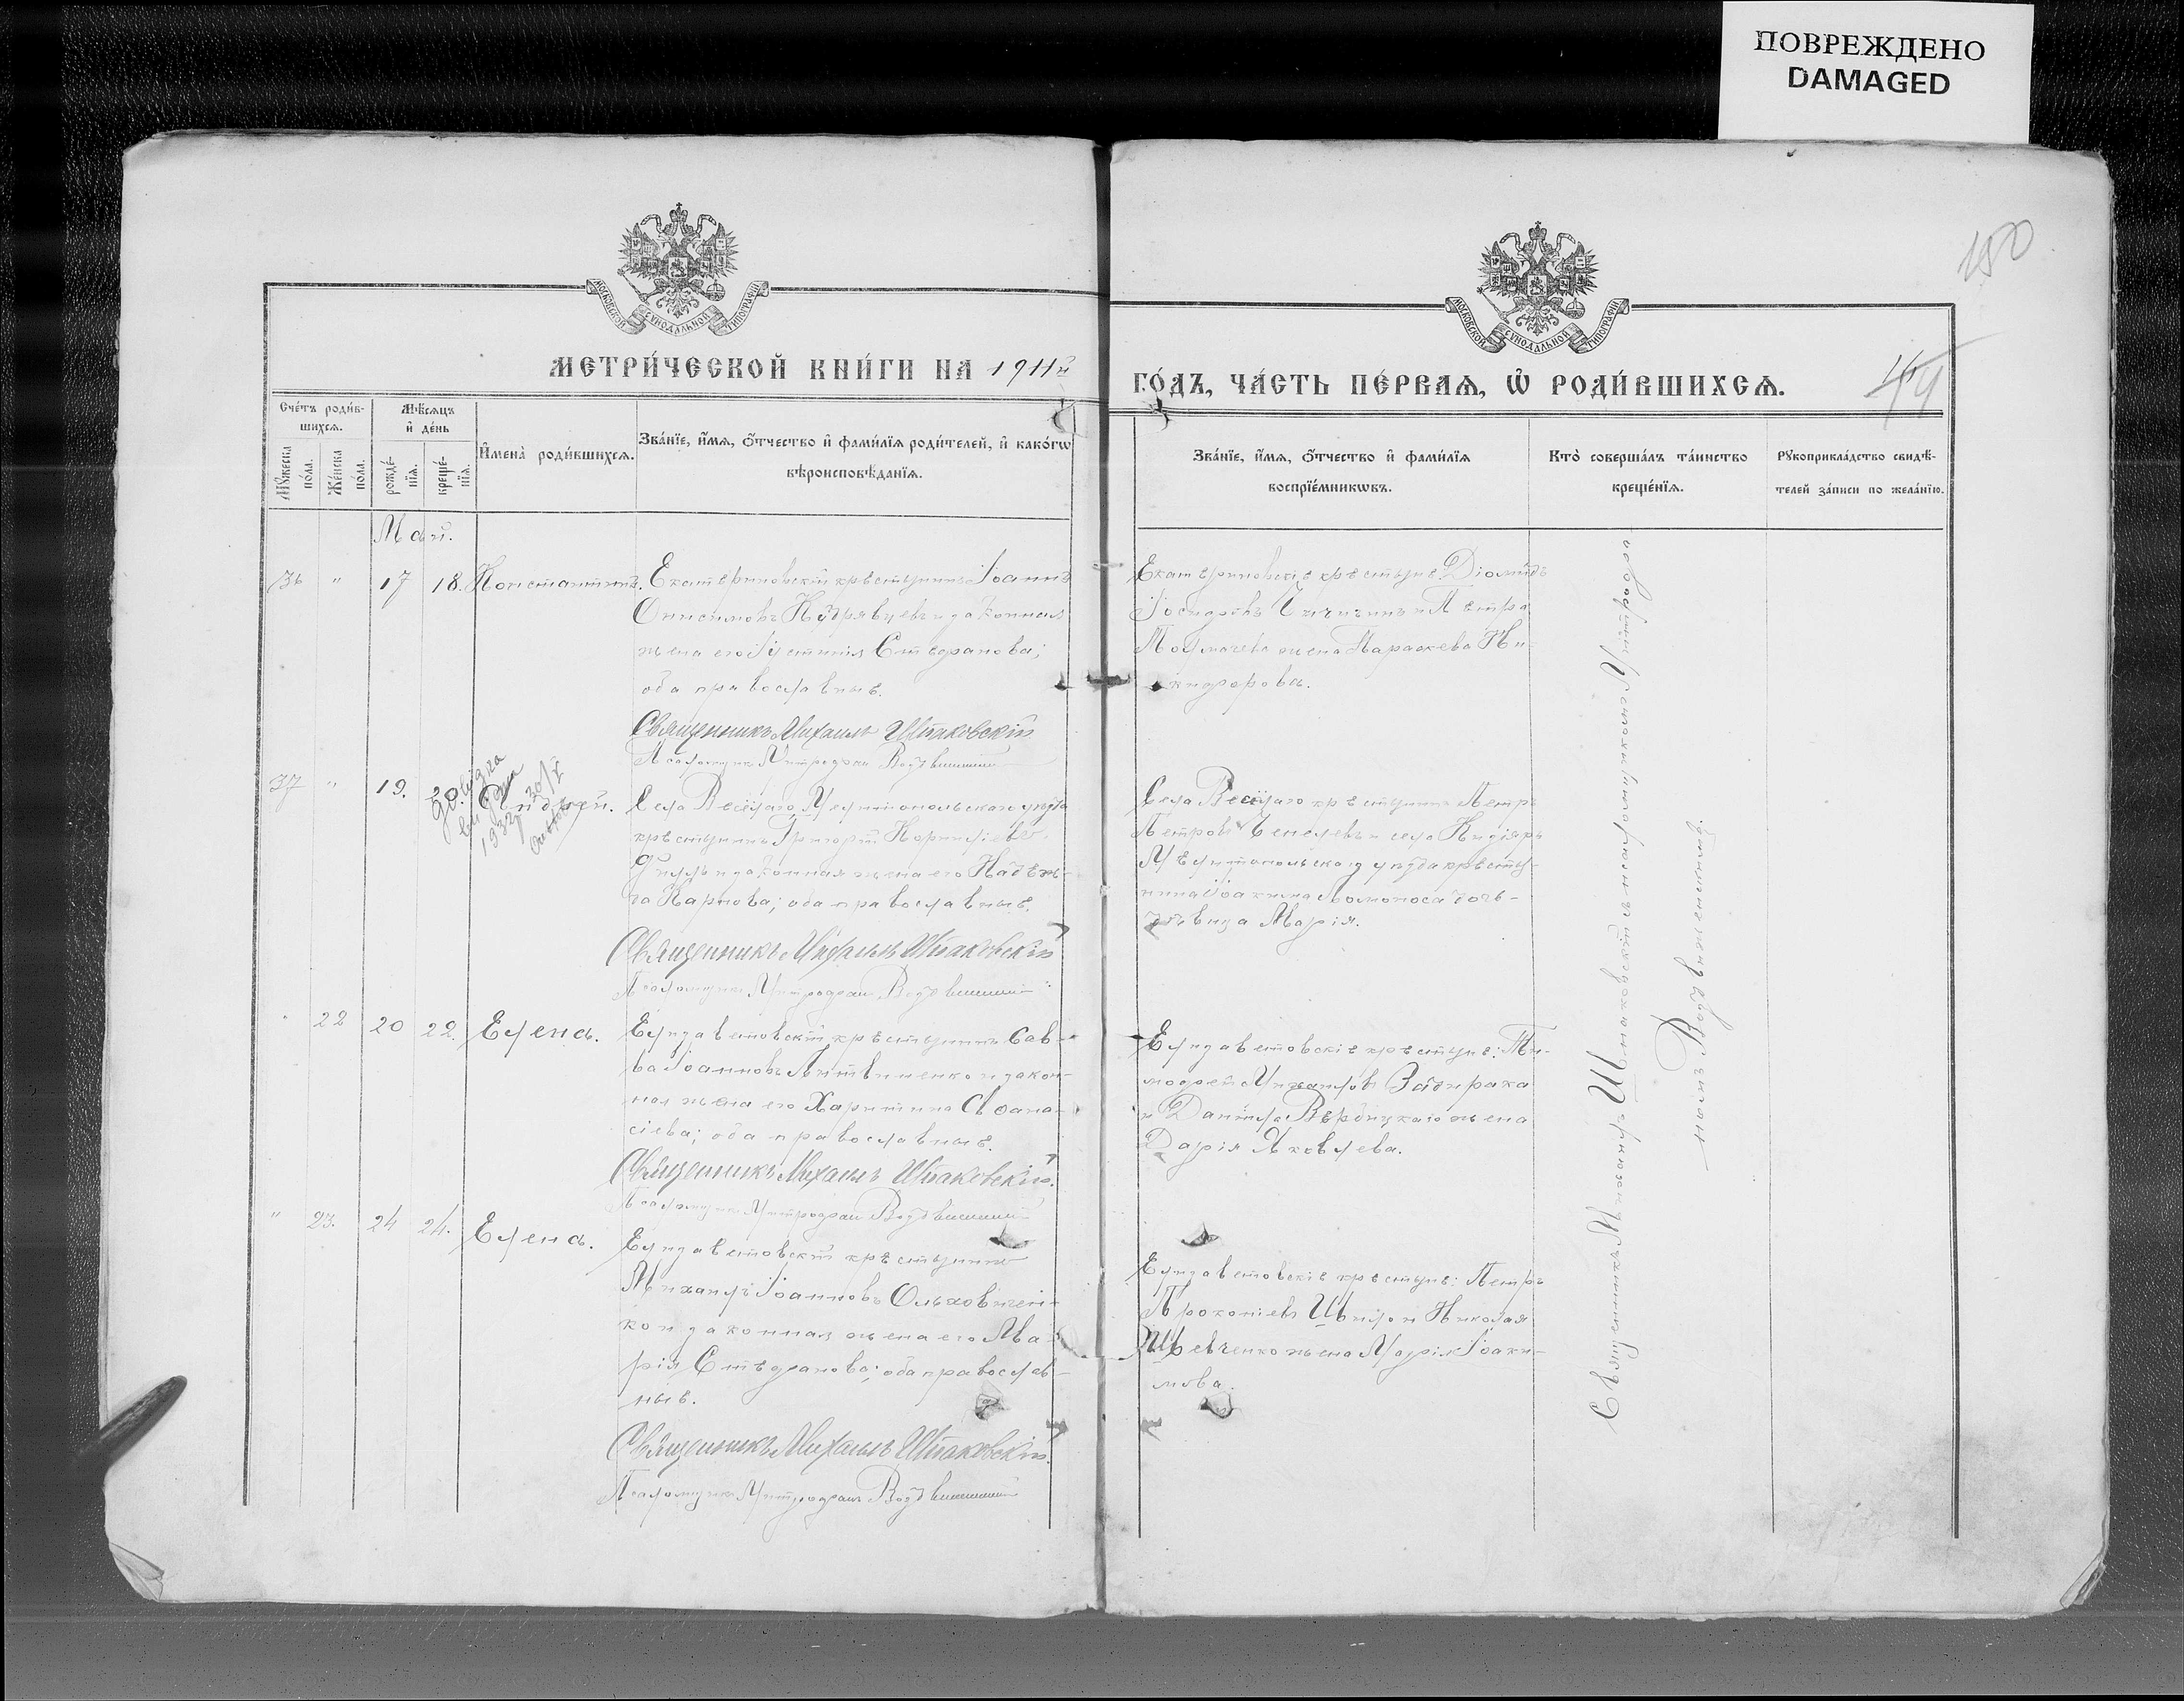 ПОВРЕЖДЕНО
DAMAGED
150
МОСКОВСКОЙ СѴНОДАЛЬНОЙ ТИПОГРАФІИ
МОСКОВСКОЙ СѴНОДАЛЬНОЙ ТИПОГРАФІИ
МЕТРИ́ЧЕСКОЙ КНИ́ГИ НА 1911й
ГО́ДЪ, ЧА́СТЬ ПЕ́РВАЯ, Ѿ РОДИ́ВШИХСЯ.
44
Сче́тъ роди́в-
шихся.
Мꙋжеска по́ла.
Же́нска по́ла.
Мѣ́сяцъ
и де́нь
рожде́-
нїя.
креще́-
нїя.
Имена̀ роди́вшихся.
Зва́нїе, и́мя, о́тчество и фами́лїя роди́телей, и како́гѡ
вѣроисповѣ́данїя.
Зва́нїе, и́мя, о́тчество и фами́лїя
воспрїе́мникѡвъ.
Кто̀ соверша́лъ та́инство
креще́нїя.
Рꙋкоприкла́дство свидѣ́-
телей за́писи по жела́нїю.
Май.
36 " 17 18. Константинъ.
Екатериновскій крестьянинъ Іоаннъ
Онисимовъ Кудрявцевъ и законная
жена его Іустинія Стефанова;
оба православные.
Священникъ Михаилъ Шпаковскій
Псаломщикъ Митрофанъ Воздвиженскій
Екатериновскіе крестьяне: Діомидъ
Чичигинъ и Петра
Толмачева жена Параскева Ни-
кифорова.
37 " 19. 20. Андрей.
довідка
видана
1932 30/X
Села Весёлаго, Мелитопольскаго уезда
крестьянинъ Григорій Корниліевъ
и законная жена его Надеж-
да Карпова; оба православные.
Священникъ Михаилъ Шпаковскій
Псаломщикъ Митрофанъ Воздвиженскій
Села Весёлаго крестьянинъ Петръ
Петровъ и села
Мелитопольскаго уезда крестья-
нина Іоакима Ломоноса дочь-
девица Марія.
" 22 20 22. Елена.
Елизаветовскій крестьянинъ Сав-
ва Іоанновъ Литвиненко и закон-
ная жена его Харитина Афана-
сіева; оба православные.
Священникъ Михаилъ Шпаковскій.
Псаломщикъ Митрофанъ Воздвиженскій
Елизаветовскіе крестьяне: Ти-
мофей Михаиловъ Задирака
и Даніила Вербицкаго жена
Дарія Яковлева.
" 23. 24 24. Елена.
Елизаветовскій крестьянинъ
Михаилъ Іоанновъ Ольховичен-
ко и законная жена его Ма-
рія Стефанова; оба православ-
ные.
Священникъ Михаилъ Шпаковскій.
Псаломщикъ Митрофанъ Воздвиженскій
Елизаветовскіе крестьяне: Петръ
Прокопіевъ Швыло и Николая
Шевченко жена Марія Іоаки-
мова.
Священникъ Михаилъ Шпаковскій съ псаломщикомъ Митрофа-
номъ Воздвиженскимъ.